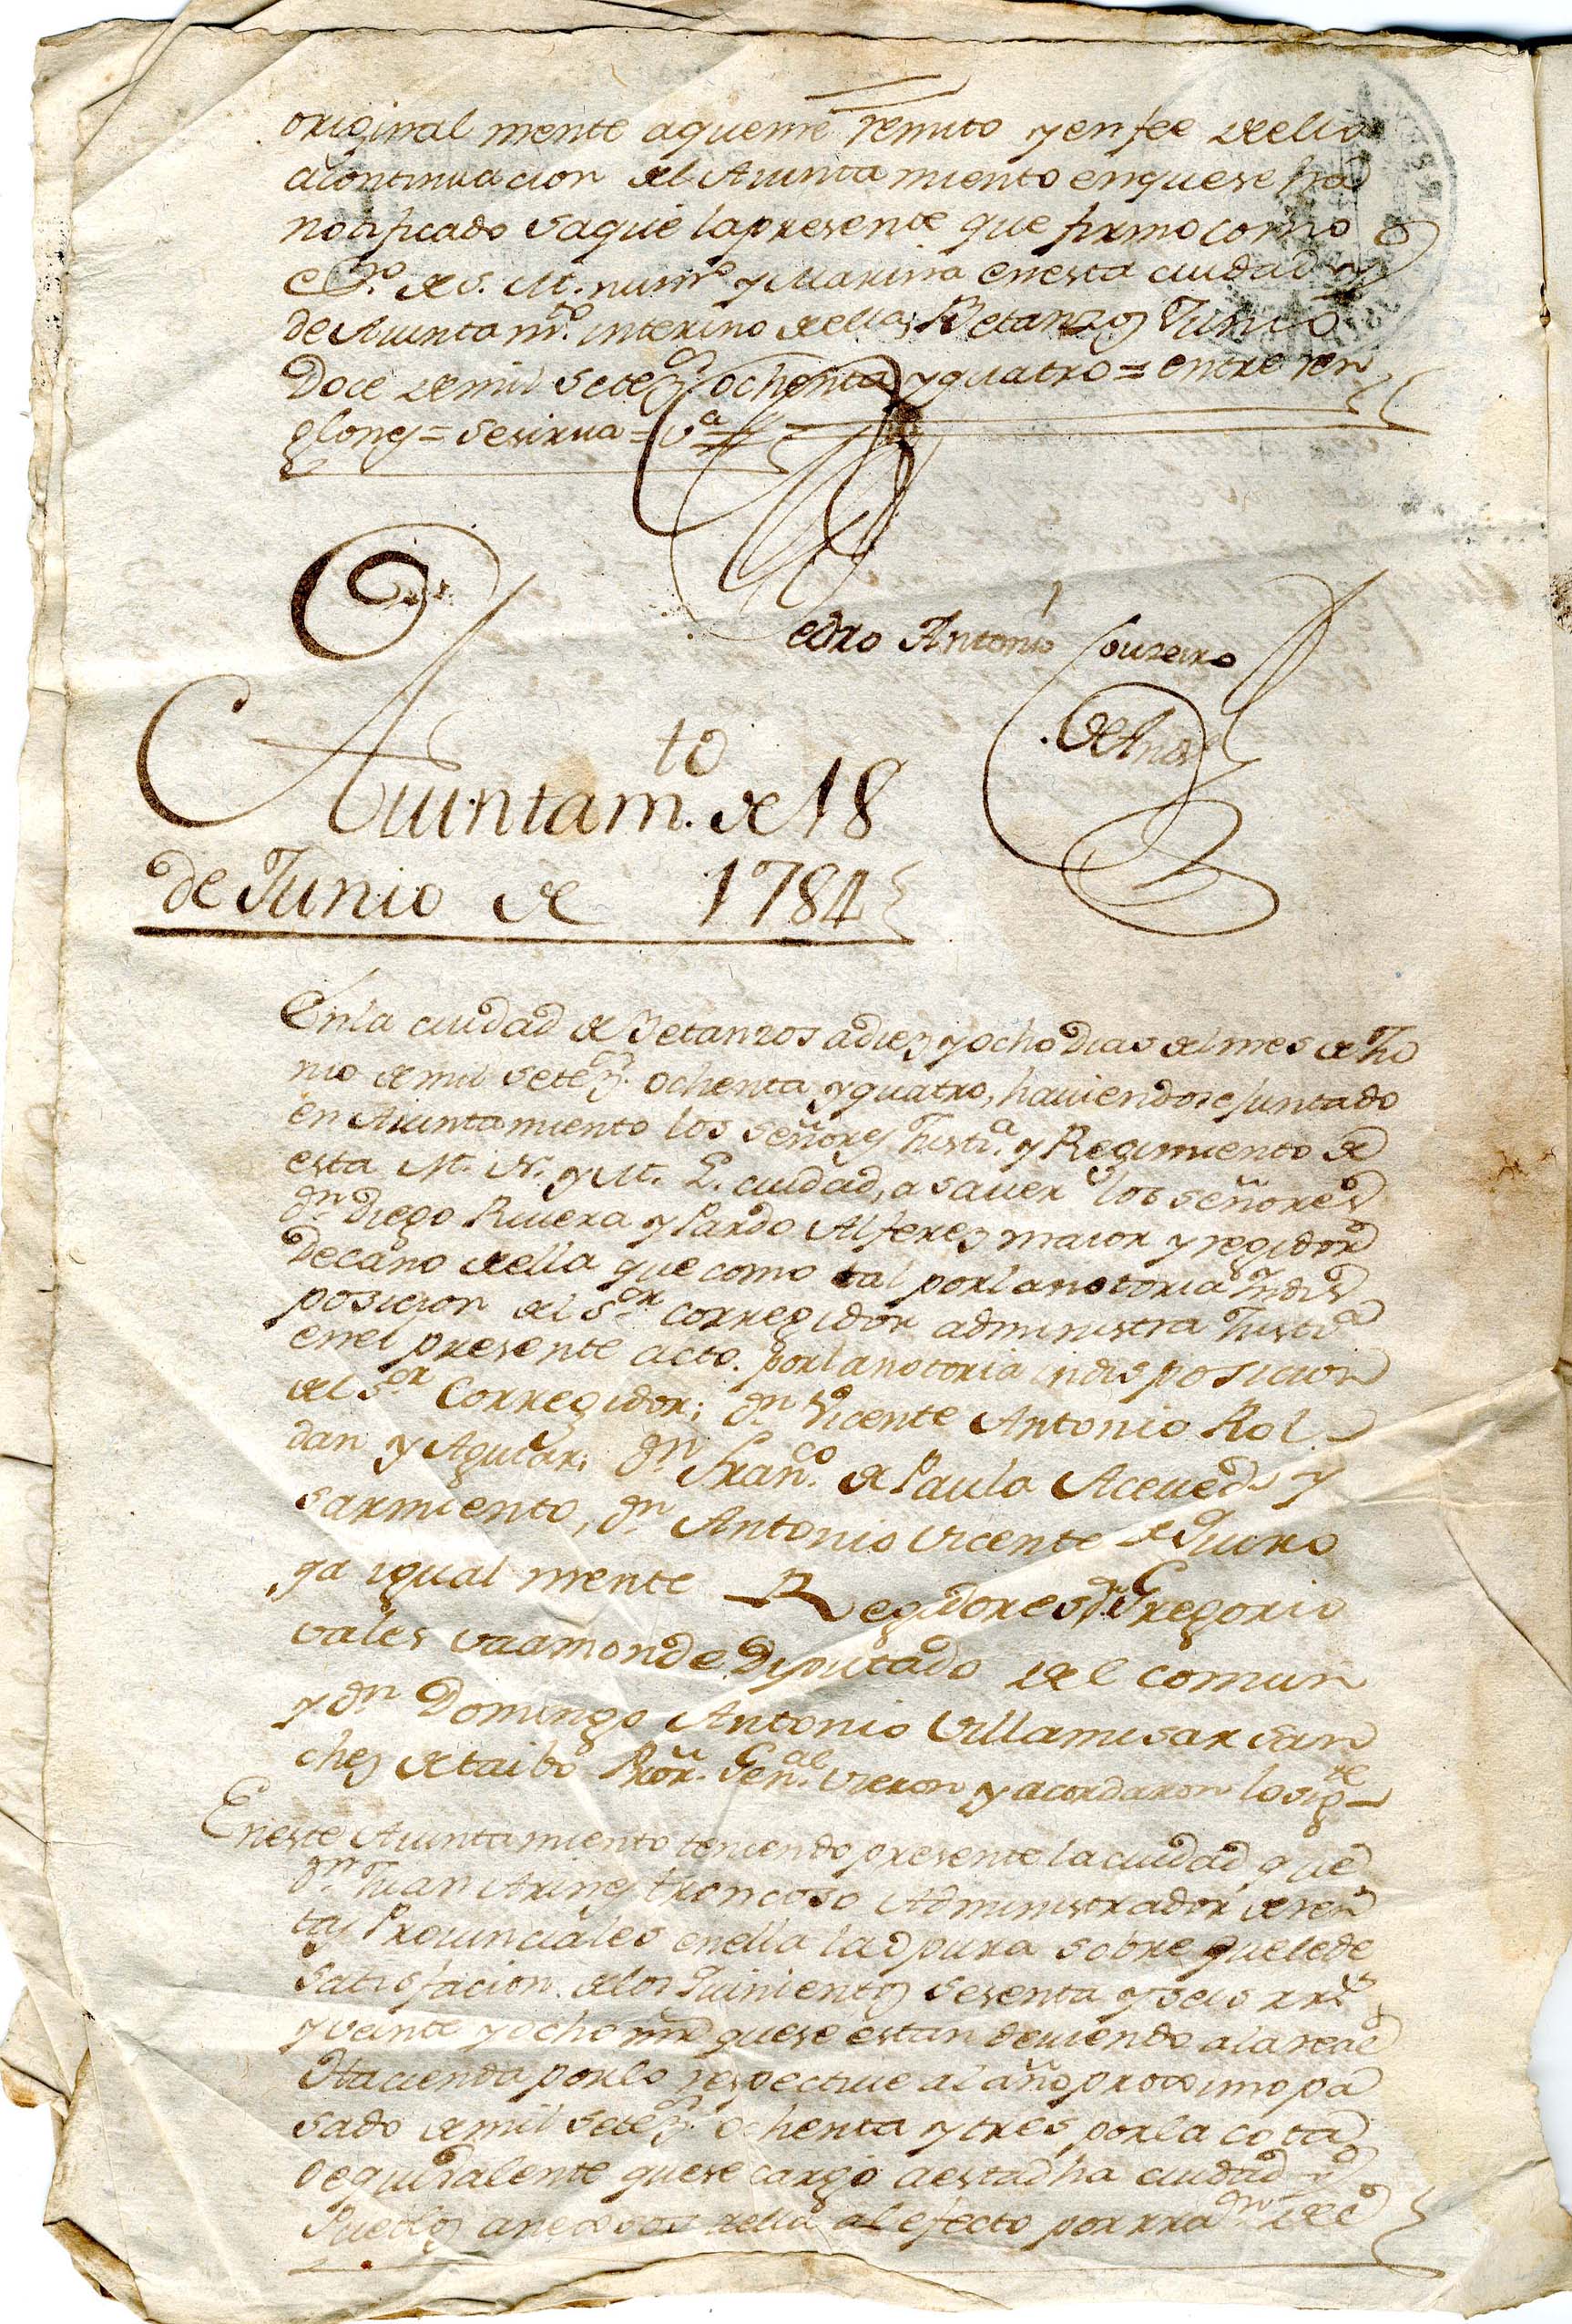 original mente aqueme remito y en fee de ello
acontinuacion del Aiuntamiento enquese ha
notificado saque lapresente que firmo como
esno. de S. M. numro. y Marina enesta ciudad y
de Aiuntamto. interino de ella, Betanzos Junio
Doce de mil setezs. ochenta y quatro = entre ren
glones = sesirva = va.
Pedro Antonio Couzeiro
Aiuntamto. de 18
de Junio de 1784
Enla ciudad de Betanzos adiez y ocho Dias del mes de Ju
nio de mil setezs. ochenta y quatro, haviendose juntado
en Aiuntamiento los señores Justa. y Regimiento de
esta M. N. y M. L. ciudad, a saver los señores
Dn. Diego Rivera y Pardo Alferez maior y regidor
Decano de ella que como tal por la notoria Indis
posicion del Sor. corregidor administra Justa.
enel presente acto. por la notoria indisposicion
del Sor. Corregidor; Dn. Vicente Antonio Rol
dan y Aguiar; Dn. Franco. de Paula Acevedo y
sarmiento, Dn. Antonio Vicente de Quiro
ga igual mente Regidores Dn. Gregorio
vales vaamonde Diputado del comun
y Dn. Domingo Antonio Villamisar San
chez de taibo Pror. Genal. vieron y acordaron lo sigte
Eneste Aiuntamiento teniendo presente la ciudad que
Dn. Juan Arines troncoso Administrador de ren
tas Provinciales en ella la apura sobre quelede
satisfacion de los Quinientos sesenta y seis rrs.
y veinte y ocho mrs quese estan deviendo a la real
Hacienda por lo respective al año proximo pa
sado de mil setezs. ochenta y tres por la cota
o equivalente quese cargo a esta dha ciudad y
Pueblos anexos de ella al efecto por rrazn. del